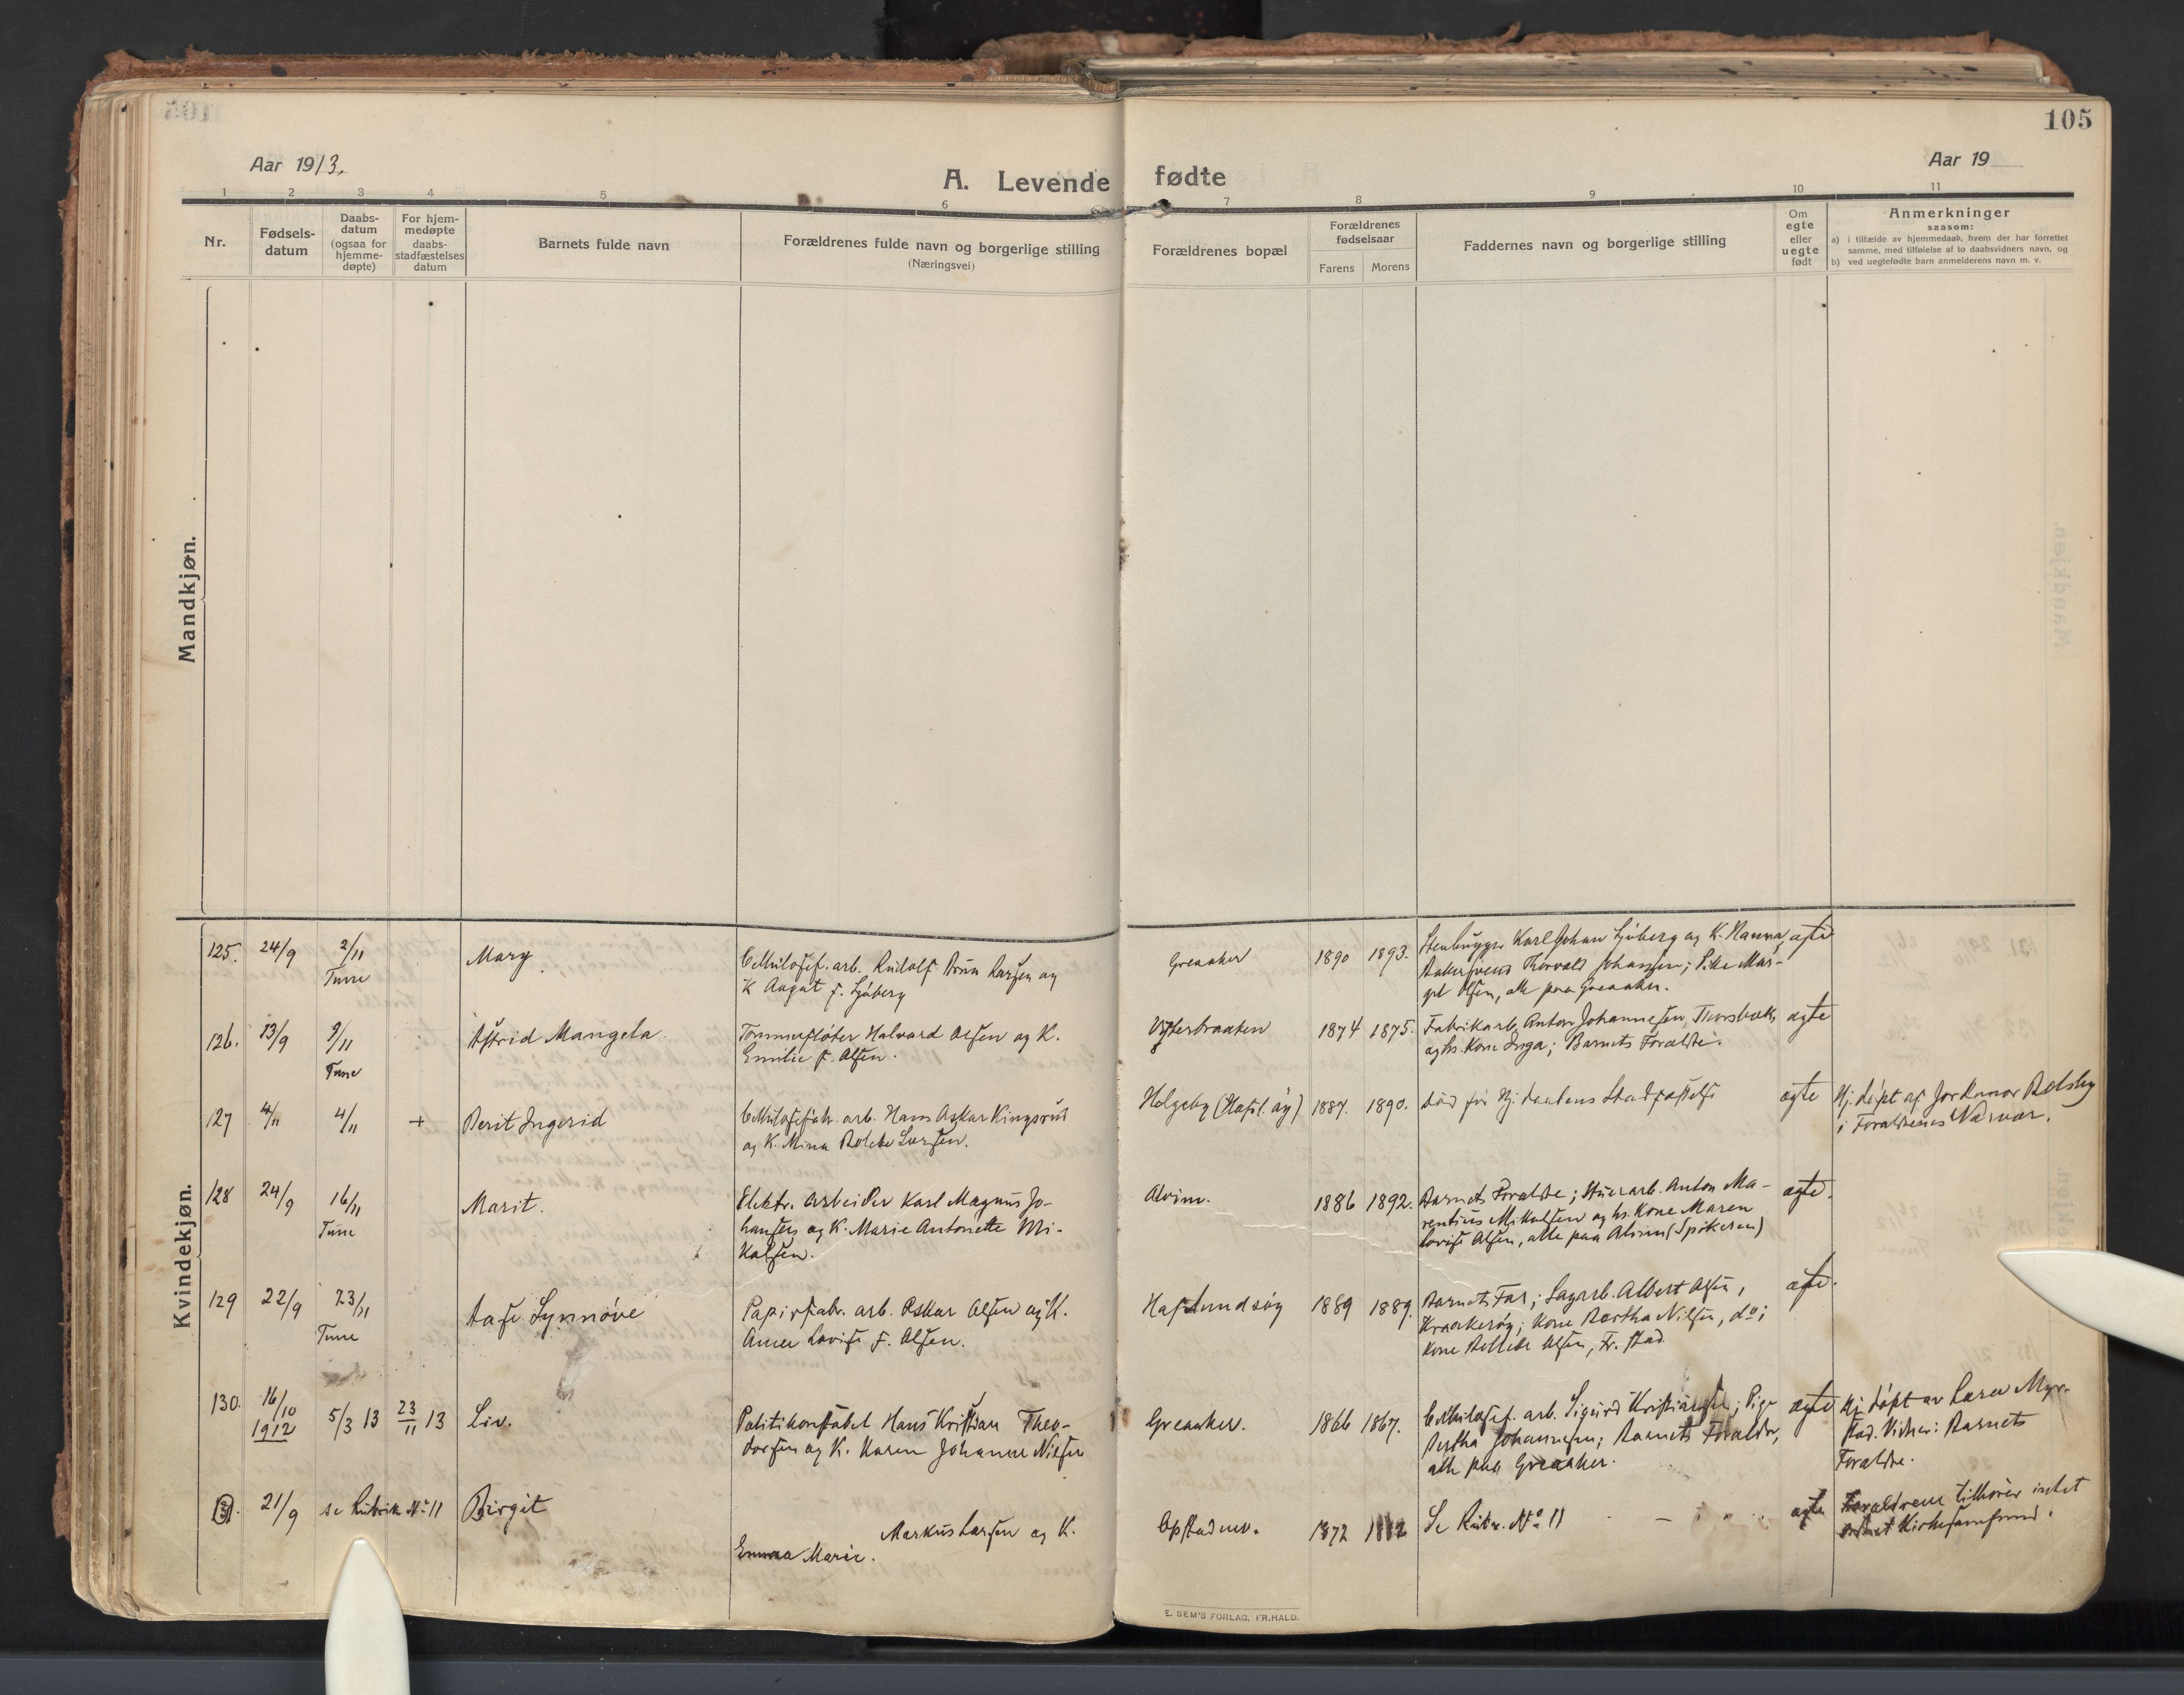 105
Aar 1913.
A. Levende fødte
Aar 19
1 2 3 4 5 6 7 8 9 10 11
Nr.
Fødsels-
datum
Daabs-
datum
(ogsaa for
hjemme-
døpte)
For hjem-
medøpte
daabs-
stadfæstelses
datum
Barnets fulde navn
Forældrenes fulde navn og borgerlige stilling
(Næringsvei)
Forældrenes bopæl
Forældrenes
fødselsaar
Farens Morens
Faddernes navn og borgerlige stilling
Om
egte
eller
uegte
født
Anmerkninger
saasom:
a) i tilfælde av hjemmedaab, hvem der har forrettet
samme, med tilføielse af to daabsvidners navn, og
b) ved uegtefødte barn anmelderens navn m. v.
Mandkjøn.
Kvindekjøn.
125. 24/9 2/11
Tune
Mary
Cellulosef. arb. Rudolf Brun Larsen og
K Aagot f. Sjöberg
Greaaker
1890 1893.
Stenhugger Karl Johan Sjöberg og K. Hanna,
Thorvald Johansen; Pike Mar-
gt Olsen, alle paa Greaaker.
ægte
126. 13/9 9/11
Tune
Astrid Mangela
Tømmerfløter Halvard Olsen og K.
Emilie f. Olsen.
1874 1875.
Fabrikarb. Anton Johannesen,
og hs. Kone Inga; Barnets Forældre.
ægte
127 4/11 4/11 +
Berit Ingerid
Cellulosefabr. arb. Hans AsKar Kingsrud
og K. Mina Bolette Larsen.
Helgeby (Hafsl. øy)
1887. 1890.
død før Hj. daabens Stadfæstelse
ægte
Hj. døpt af Jordmor Rolsby
i Forældrenes Nærvær.
128 24/9 16/11
Tune
Marit.
Elektr. arbeider Karl Magnus Jo-
hansen og K. Marie Antonette Mi-
Kalsen.
Alvim.
1886 1892.
Barnets Forældre; arb. Anton Ma-
rentius Mikalsen og hs. Kone Maren
Lovise Olsen, alle paa Alvim (Spikeren)
ægte.
129 22/9 23/11
Tune
Aase Synnøve
Papirfabr. arb. Oskar Olsen og K.
Anna Lovise f. Olsen.
Hafslundsøy
1889 1889.
Barnets Far; Sagarb. Albert Olsen,
Kraakerøy; Kone Bertha Nilsen, do;
Kone Bolette Olsen, Fr. stad.
ægte.
130. 16/10
1912
5/3 13 23/11 13
Liv.
Politikonstabel Hans Kristian Theo-
dorsen og K. Karen Johanne Nilsen
Greaaker.
1866 1867.
Cellulosef. arb. Sigurd Kristiansen; Pige
Bertha Johannesen; Barnets Forældre,
alle paa Greaaker.
ægte
Hj. døpt av Lærer Myr-
stad. Vidner: Barnets
Forældre.
131. 21/9 se Rubrik No 11
Birgit
Markus Larsen og K.
Emma Marie.
Opstadnes.
1872
Se Rubr. No 11
ægte
Forældrene tilhører intet
ordnet Kirkesamfund.
E. SEM'S FORLAG, FR.HALD.